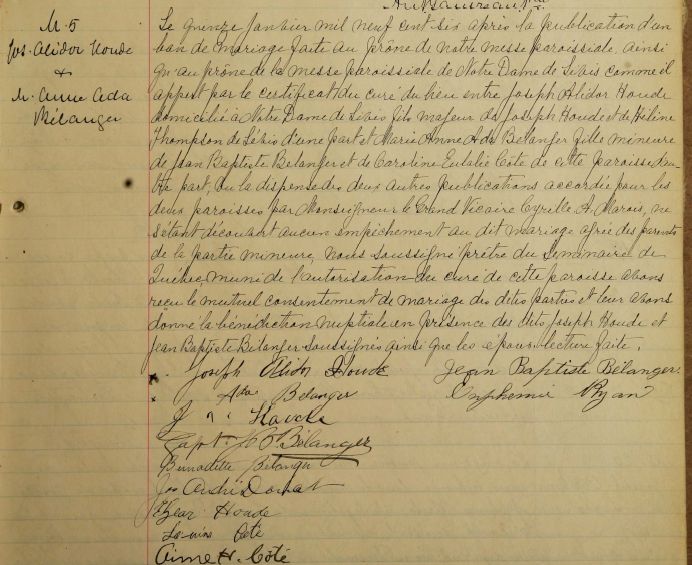 M. 5
Jos. Alidor Houde
+
M. Anne Ada
Bélanger
Le quinze janvier mil neuf cent six après la publication d'un
ban de mariage faite au prône de notre messe paroissiale, ainsi
qu'au prône de la messe paroissiale de Notre Dame de Lévis comme il
appert par le certificat du curé du lieu entre Joseph Alidor Houde
domicilié à Notre Dame de Lévis fils majeur de Joseph Houde et de Héline
Thompson de Lévis d'une part et Marie Anne Ada Bélanger fille mineure
de Jean Baptiste Bélanger et de Caroline Eulalie Côté de cette paroisse d'au-
tre part, vu la dispense des deux autres publications accordée pour les
deux paroisses par Monseigneur le Grand Vicaire Cyrille A. Marois, ne
s'étant découvert aucun empêchement au dit mariage agrée des parents
de la partie mineure, nous soussigné prêtre du Séminaire de
Québec, muni de l'autorisation du curé de cette paroisse avons
reçu le mutuel consentement de mariage des dites parties et leur avons
donné la bénédiction nuptiale en présence des dits Joseph Houde et
Jean Baptiste Bélanger soussignés ainsi que les époux. Lecture faite.
Joseph Alidor Houde Jean Baptiste Bélanger
Ada Bélanger Euphemie Ryan
J Houde
Capt. J. Bélanger
Bernadette Bélanger
Jos André Donat
Elzéar Houde
Côté
Aimé H. Côté